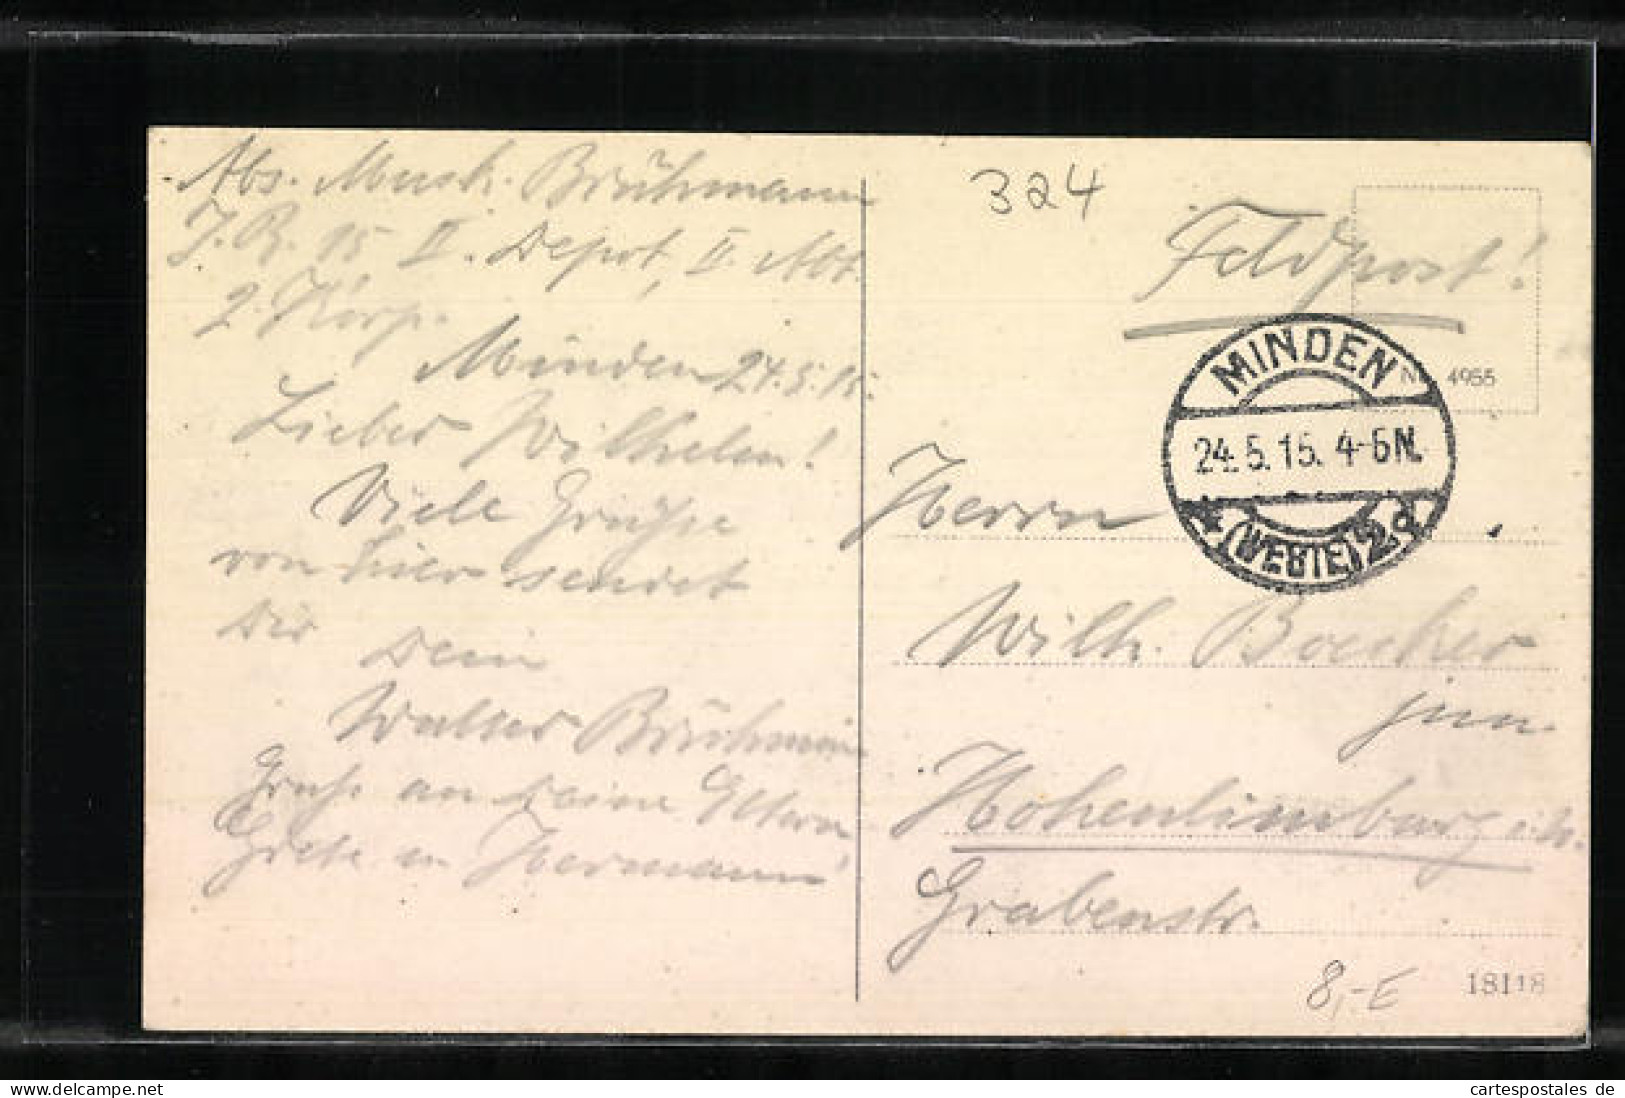 Abs. Musk. Brühmann
J. R. 15 II. Depot, II. Abt.
2. Korp.
Minden 24.5.15.
Lieber Wilhelm!
Viele Grüße
von hier sendet
Dir
Dein
Walter Brühmann
Gruß an Deine Eltern,
Grete u. Hermann
324
Feldpost!
N 4955
MINDEN
24.5.15. 4-5N.
(WESTF) 2 d
Herrn
Wilh. Boecker
jun.
Hohenlimburg i. W.
Grabenstr.
8,-E
18118
hier-de
cartespostales de